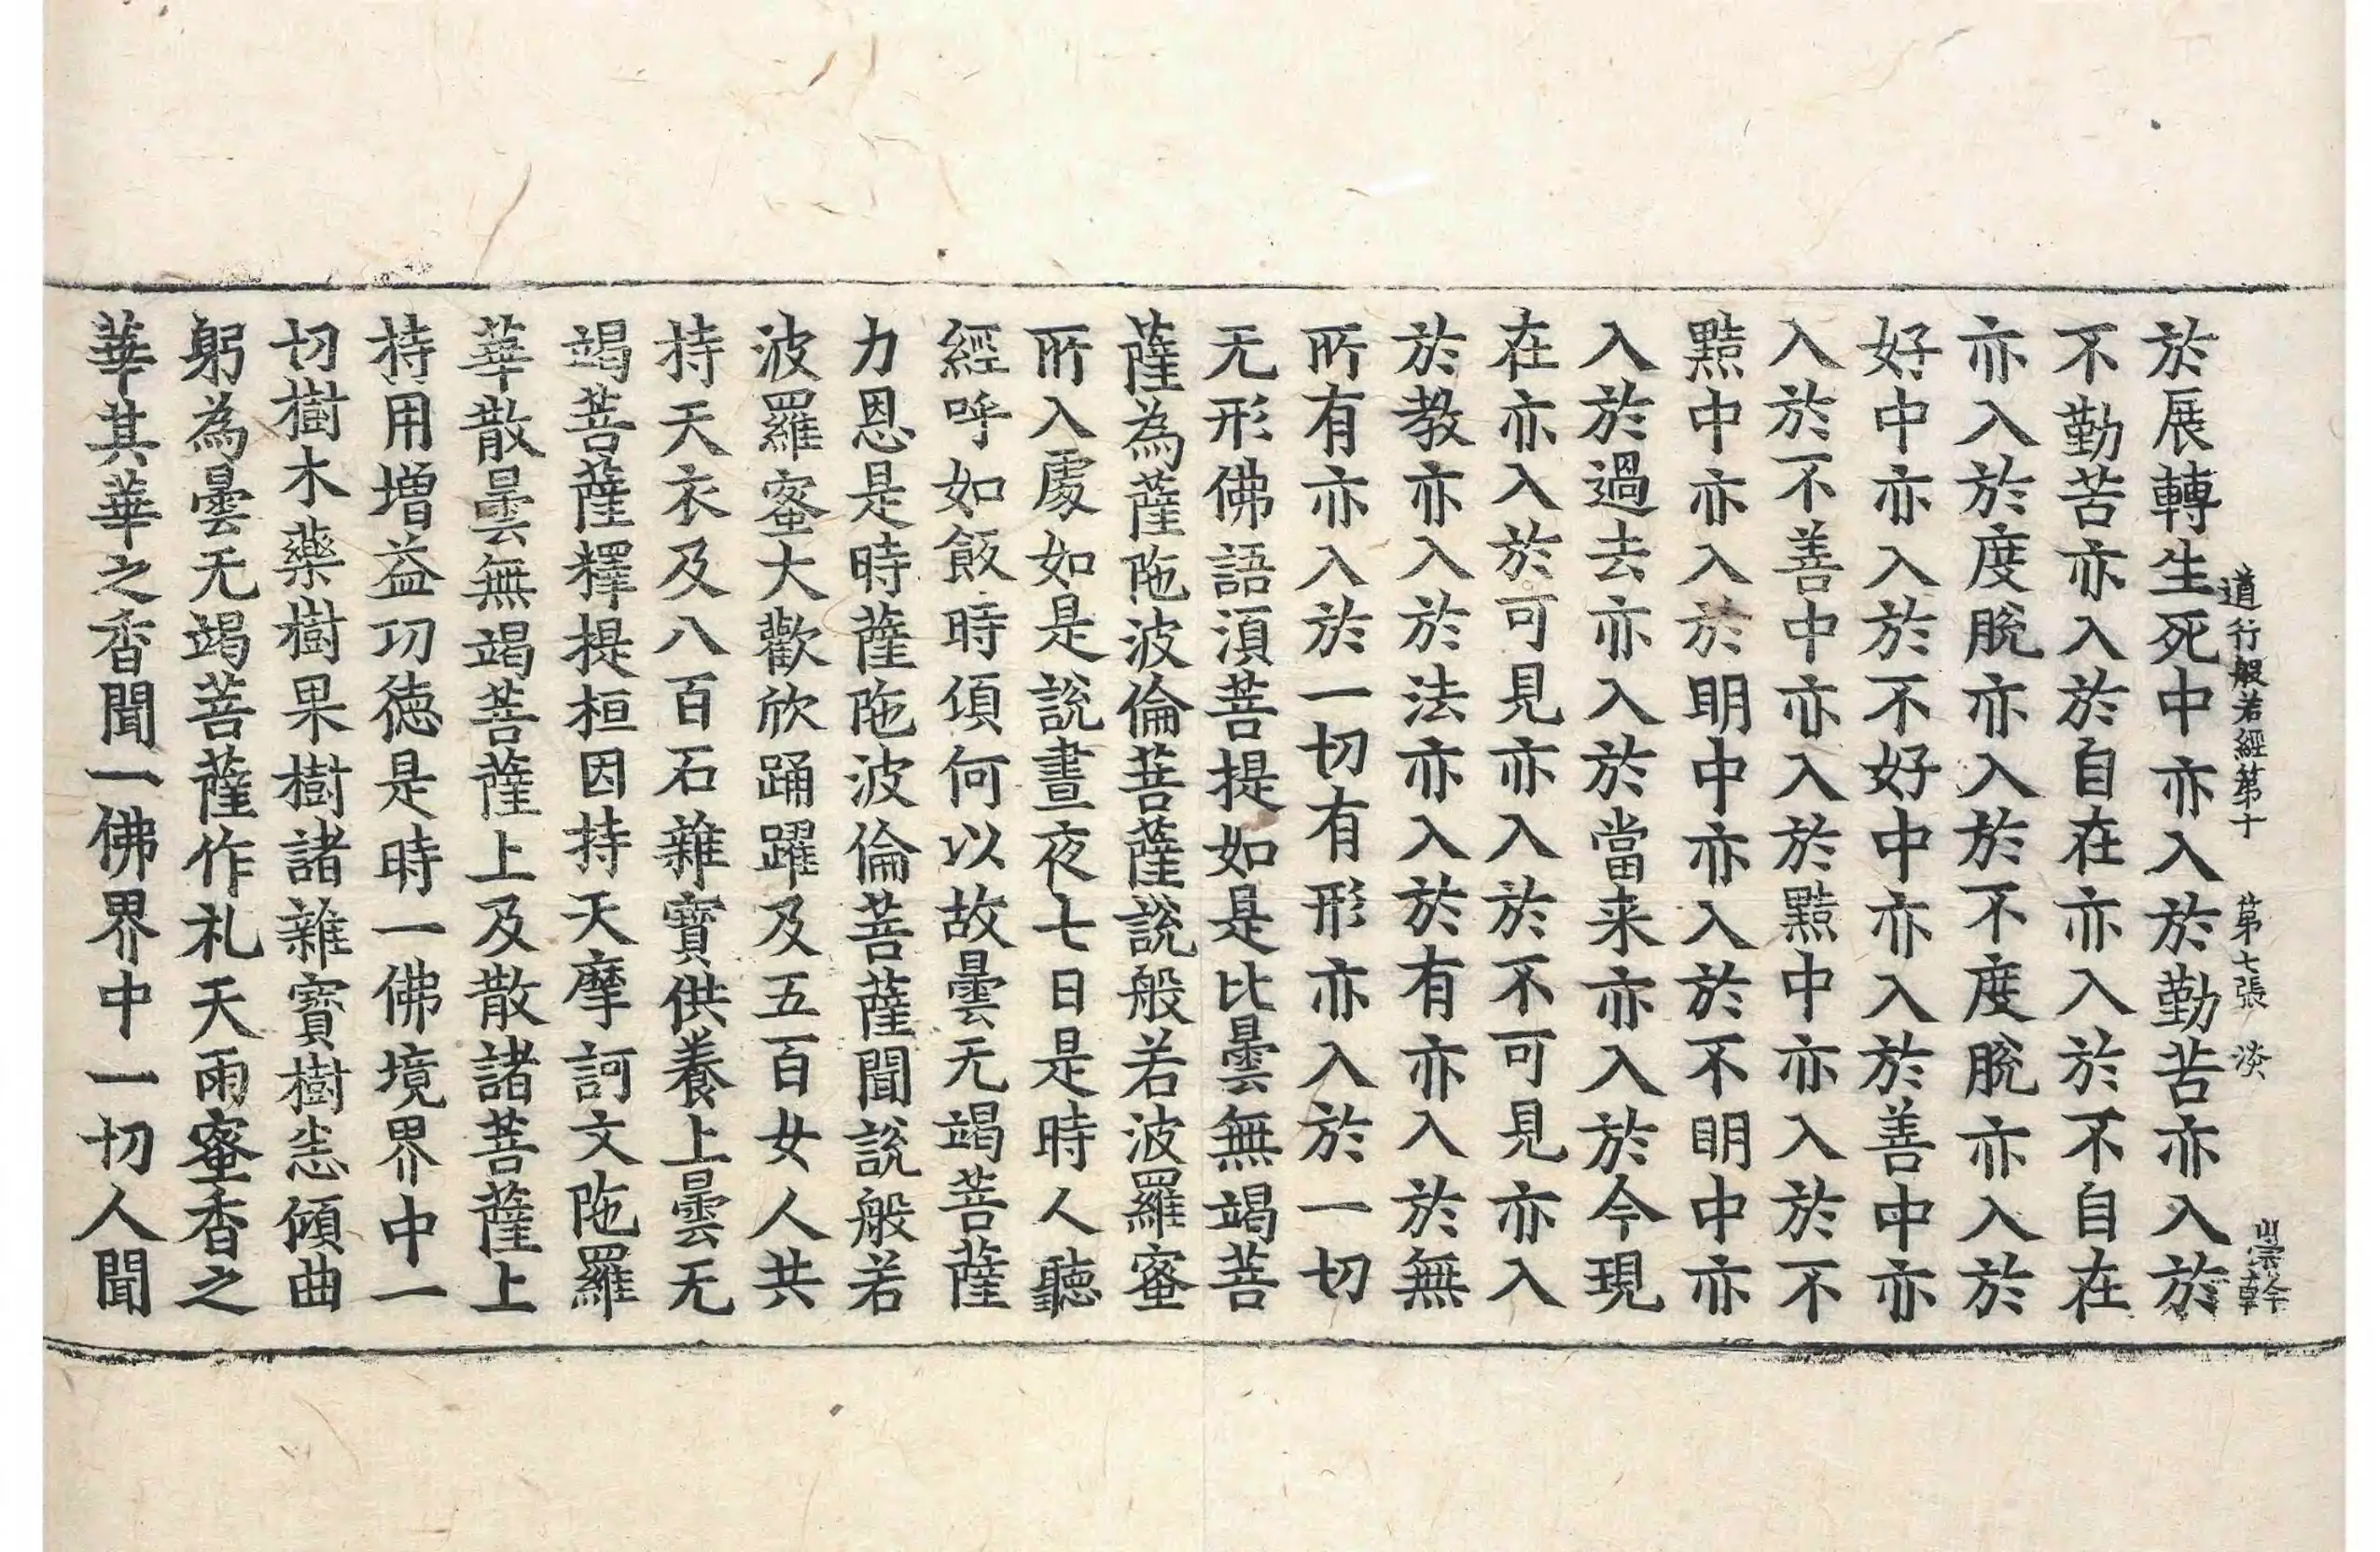 於展轉生死中亦入於勤苦亦入於
道行般若經第十　第七張　淡　宗幹
不勤苦亦入於自在亦入於不自在
亦入於度脫亦入於不度脫亦入於
好中亦入於不好中亦入於善中亦
入於不善中亦入於黠中亦入於不
黠中亦入於明中亦入於不明中亦
入於過去亦入於當来亦入於今現
在亦入於可見亦入於不可見亦入
於教亦入於法亦入於有亦入於無
所有亦入於一切有形亦入於一切
无形佛語湏菩提如是比曇無竭菩
薩為薩陁波倫菩薩說般若波羅蜜
所入處如是說晝夜七日是時人聽
經呼如飯時頃何以故曇无竭菩薩
力恩是時薩陁波倫菩薩聞說般若
波羅蜜大歡欣踊躍及五百女人共
持天衣及八百石雜寶供養上曇无
竭菩薩釋提桓因持天摩訶文陁羅
華散曇無竭菩薩上及散諸菩薩上
持用増益功徳是時一佛境界中一
切樹木藥樹果樹諸雜寶樹悉傾曲
躬為曇无竭菩薩作礼天雨蜜香之
華其華之香聞一佛界中一切人聞